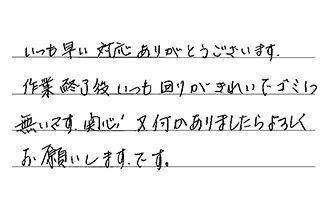 いつも早い対応ありがとうございます.
作業終了後いつも回りがきれいでゴミ1つ
無いです.関心! 又何かありましたらよろしく
お願いします.です。